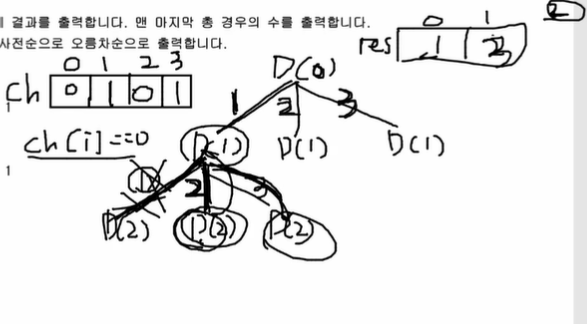 결과를 출력합니다. 맨 마지막 총 경우의 수를 출력합니다.
사전순으로 오름차순으로 출력합니다.
0 1
res 1 3
0 1 2 3
ch 0 1 0 1
1
D(0)
1 2 3
ch[i]==0
D(1) D(1) D(1)
1
1 2 3
D(2) D(2) D(2)